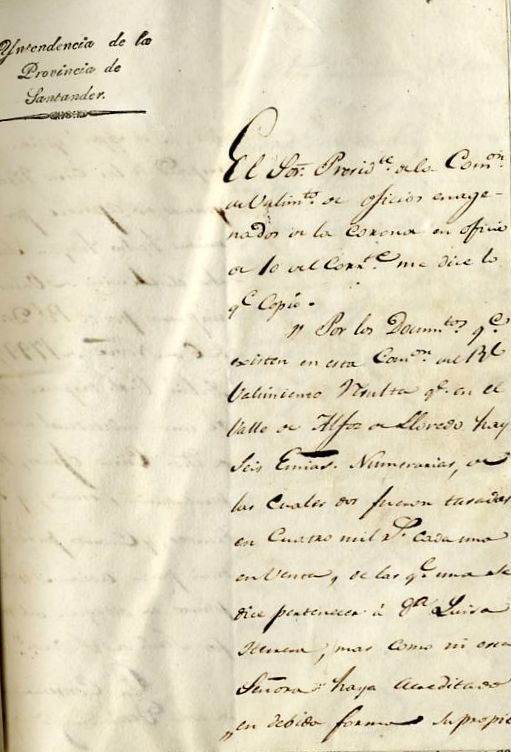 Yntendencia de la
Provincia de
Santander.
El Sor. Presidte. de la Comon.
de Valimto. de oficios enage-
nados de la Corona en oficio
de 10 del Corrte. me dice lo
qe. Copio.
" Por los Documtos. qe.
existen en esta Comon. del Rl.
Valimiento Resulta qe. en el
Valle de Alfoz de Lloredo hay
Seis Escnias. Numerarias, de
las cuales dos fueron tasadas
en Cuatro mil rs. cada una
en Venta, de las qe. una se
dice pertenecer à Da. Luisa
mas como ni esa
Señora haya acreditado
en debida forma su propie